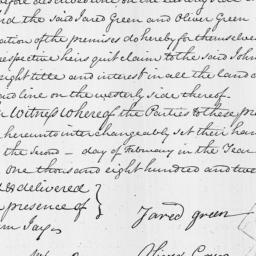 and the said Jared Green and Oliver Green
ation of the premises do hereby for themselves
respective heirs quit claim to the said John
right title and interest in all the land o
id line on the westerly side thereof.
n Witness whereof the Parties to these pre
hereunto interchangeably set their han
the second day of February in the Year
one thousand eight hundred and twe
& delivered
presence of }
Jared green
m Jay